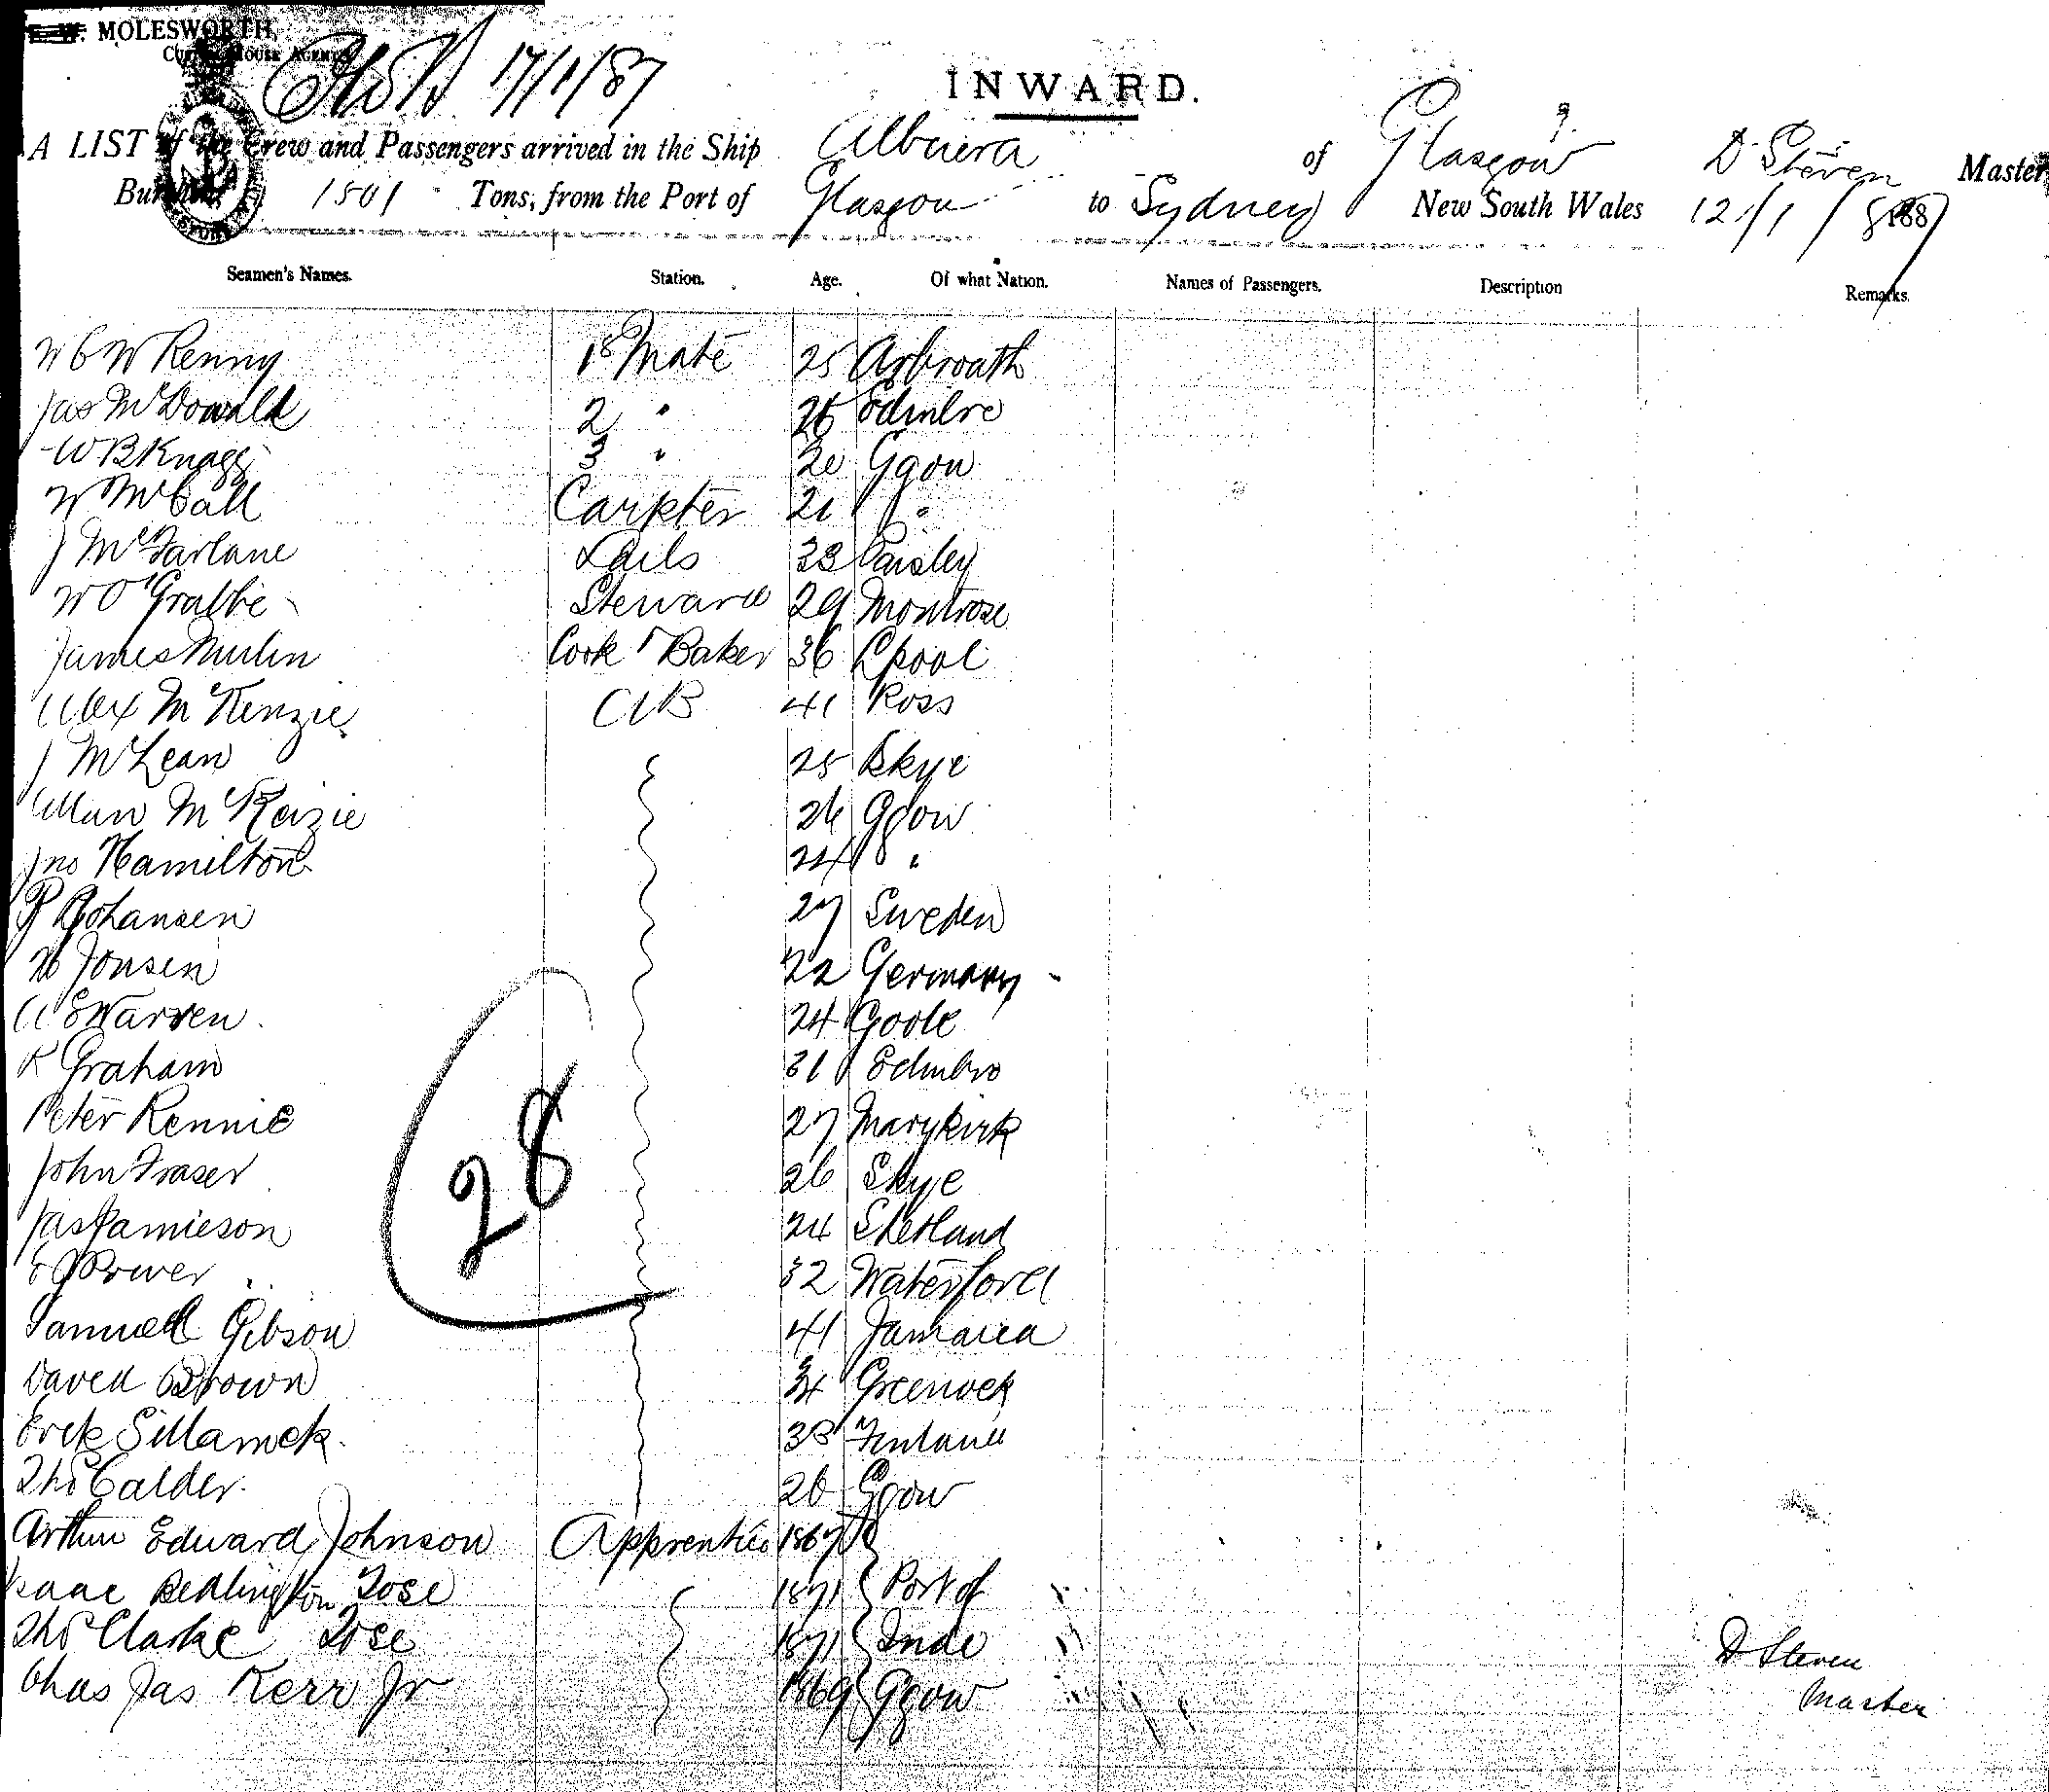 E. W. MOLESWORTH,
CUSTOM HOUSE AGENT
17/1/87
INWARD.
A LIST of the Crew and Passengers arrived in the Ship Albuera of Glasgow D Steven Master
Burthen 1501 Tons, from the Port of Glasgow to Sydney New South Wales 12/1/87 188
Seamen's Names. Station. Age. Of what Nation. Names of Passengers. Description Remarks.
Kenny 1s Mate 25 Arbroath
Jas McDonald 2 " 26 Edinbro
W B Knagg 3 " 20 Ggow
W McCall Carpter 21 "
J McFarlane Sails 33 Paisley
Steward 29 Montrose
James Cook & Baker 36 Lpool
Alex McKenzie AB 41 Ross
J McLean 25 Skye
Allan McKenzie 26 Ggow
Jno Hamilton 24 "
Johansen 27 Sweden
Jonsen 22 Germany
A E Warren 24 Goole
R Graham 31 Edinbro
Peter Rennie 27 Marykirk
John Fraser 26 Skye
Jas Jamieson 24 Shetland
Power 32 Waterford
Samuel Gibson 41 Jamaica
David Brown 34 Greenock
Erik 38 Finland
Thos Calder 26 Ggow
28
Arthur Edward Johnson Apprentice 1867
Isaac Bedlington Tose 1871 Port of
Thos Clarke Tose 1871 Inde
Chas Jas Kerr Jr 1869 Ggow
D Steven
Master